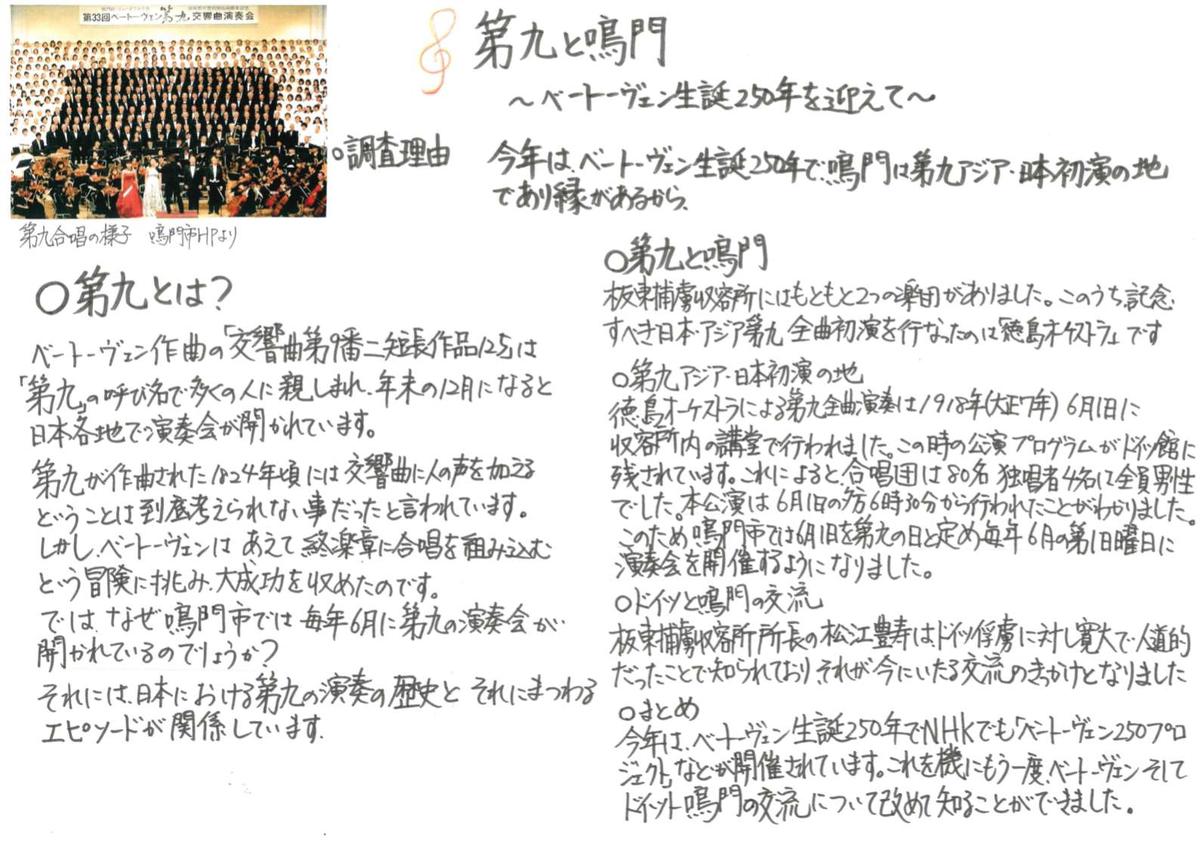 第33回ベートーヴェン第九交響曲演奏会
第九と鳴門
～ベートーヴェン生誕250年を迎えて～
○調査理由
今年は、ベートーヴェン生誕250年で、鳴門は第九アジア・日本初演の地
であり縁があるから、
第九合唱の様子 鳴門市HPより
○第九とは？
ベートーヴェン作曲の「交響曲第9番ニ短長作品125」は
「第九」の呼び名で多くの人に親しまれ、年末の12月になると
日本各地で演奏会が開かれています。
第九が作曲された1824年頃には交響曲に人の声を加える
ということは到底考えられない事だったと言われています。
しかし、ベートーヴェンは あえて 終楽章に合唱を組み込む
という冒険に挑み、大成功を収めたのです。
では、なぜ鳴門市では毎年6月に第九の演奏会が
開かれているのでしょうか？
それには、日本における第九の演奏の歴史と それにまつわる
エピソードが関係しています.
○第九と鳴門
板東捕虜収容所にはもともと2つの楽団がありました。このうち、記念
すべき日本・アジア第九 全曲初演を行なったのは「徳島オケストラ」です
○第九アジア・日本初演の地
徳島オーケストラによる第九全曲演奏は1918年(大正7年) 6月1日に
収容所内の講堂で行われました。この時の公演プログラムがドイツ館に
残されています。これによると、合唱団は80名 独唱者4名に全員男性
でした。本公演は6月1日の夕方6時30分から行われたことがわかりました。
このため鳴門市では6月1日を第九の日と定め毎年6月の第1日曜日に
演奏会を開催するようになりました。
○ドイツと鳴門の交流
板東捕虜収容所所長の松江豊寿は、ドイツ俘虜に対し寛大で人道的
だったことで知られており それが今にいたる交流のきっかけとなりました
○まとめ
今年は、ベートーヴェン生誕250年でNHKでも「ベートーヴェン250プロ
ジェクト」などが開催されています。これを機にもう一度、ベートーヴェン そして
ドイツト鳴門の交流について改めて知ることができました。